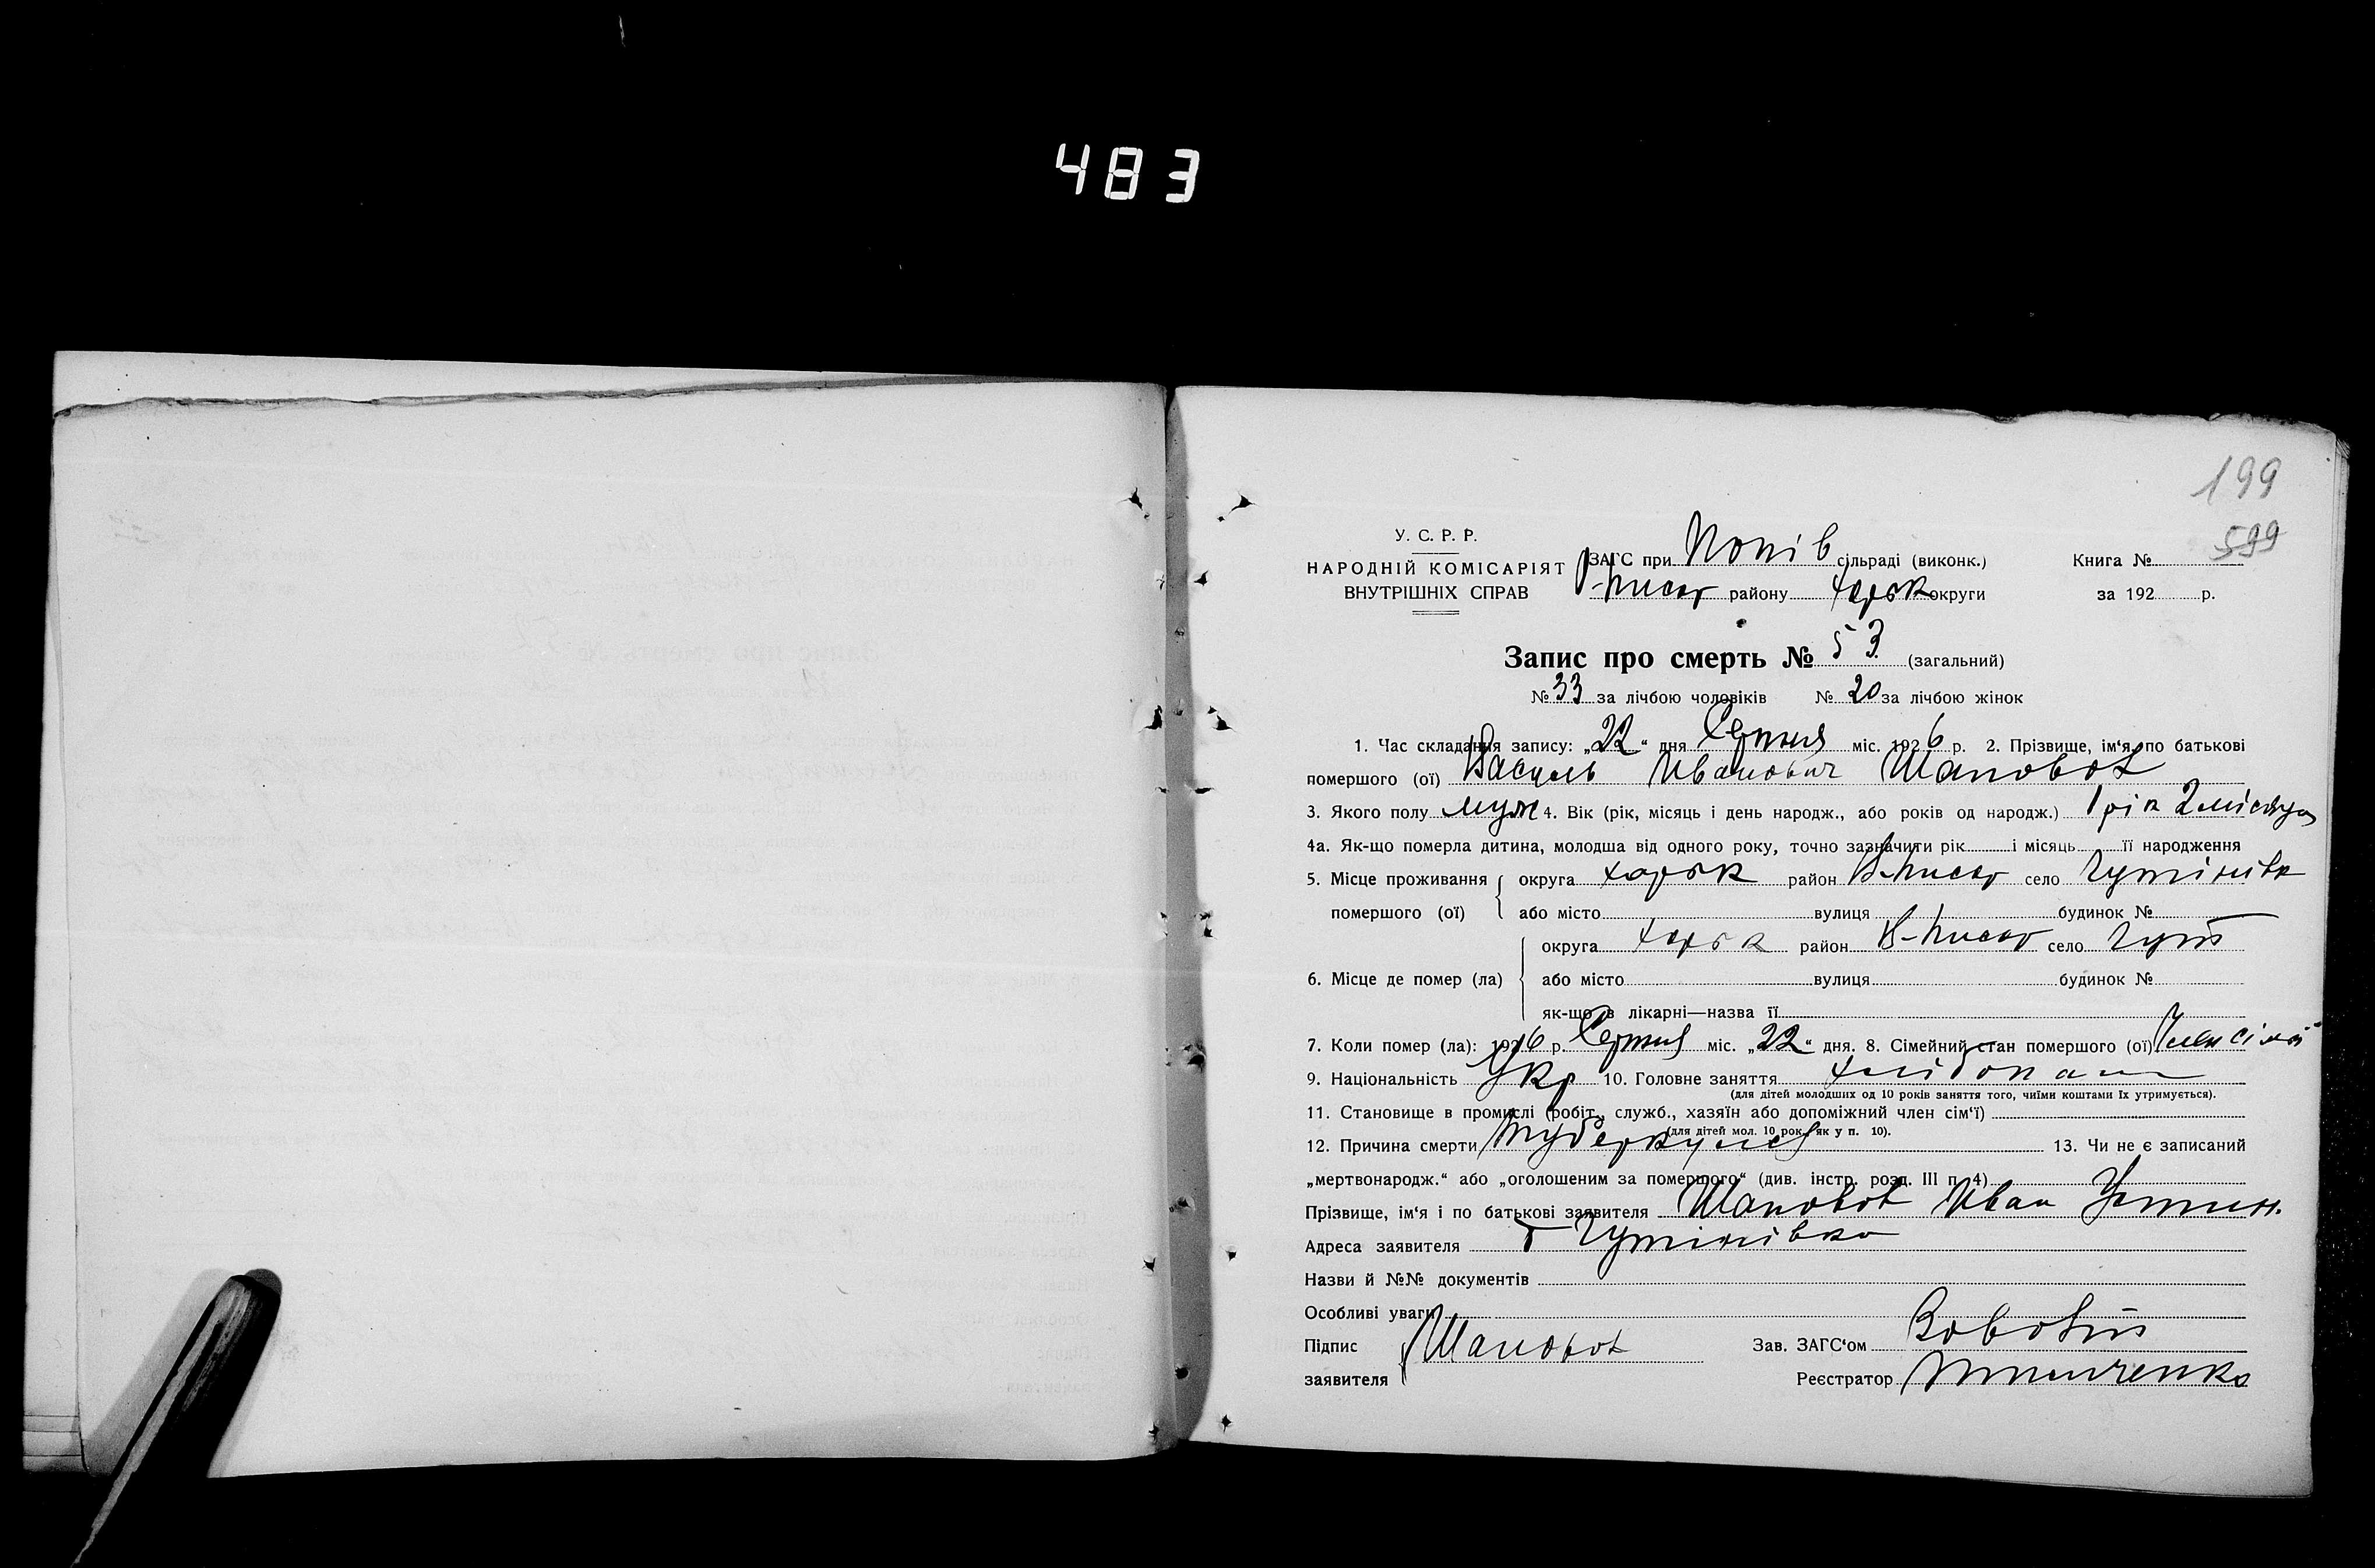 483
199
599
У. С. Р. Р.
НАРОДНІЙ КОМІСАРІЯТ
ВНУТРІШНІХ СПРАВ
ЗАГС при Попів сільраді (виконк.)
В-Писар району Харьк округи
Книга №
за 192 р.
Запис про смерть № 53 (загальний)
№ 33 за лічбою чоловіків № 20 за лічбою жінок
1. Час складання запису: „22“ дня Серпня міс. 1926 р. 2. Прізвище, ім‘я, по батькові
помершого (ої) Василь Иванович Шаповал
3. Якого полу муж 4. Вік (рік, місяць і день народж., або років од народж.) 1 рік 2 місяця
4а. Як-що померла дитина, молодша від одного року, точно зазначити рік і місяць її народження
5. Місце проживання округа Харьк район В-Писар село Гутінівка
помершого (ої) або місто вулиця будинок №
округа Харьк район В-Писар село Гут
6. Місце де помер (ла) або місто вулиця будинок №
як-що в лікарні—назва її
7. Коли помер (ла): 1926 р. Серпня міс. „22“ дня. 8. Сімейний стан помершого (ої) Член сімї
9. Національність Укр 10. Головне заняття хлібопаш
(для дітей молодших од 10 років заняття того, чиїми коштами їх утримується).
11. Становище в промислі (робіт., служб., хазяїн або допоміжний член сім‘ї)
(для дітей мол. 10 рок. як у п. 10).
12. Причина смерти Туберкульоз 13. Чи не є записаний
„мертвонародж.“ або „оголошеним за помершого“ (див. інстр. розд. III п. 4)
Прізвище, ім‘я і по батькові заявителя Шаповал Иван Устин.
Адреса заявителя Гутінівка
Назви й №№ документів
Особливі уваги
Підпис Шаповал Зав. ЗАГС‘ом
заявителя Реєстратор